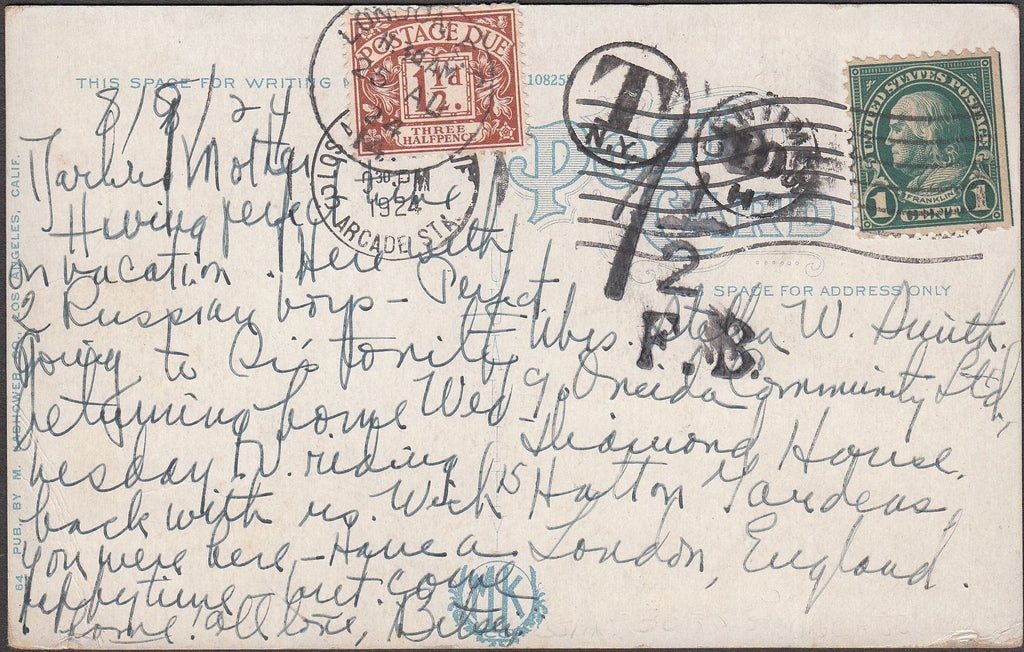 THIS SPACE FOR WRITING
108258
8/8/24
Mother
Having perfect time
on vacation. Here with
2 Russian boys – Perfect
Going to Sis' tonite
returning home Wed
nesday. W. riding
back with us. Wish
you were here, – Have a
happy time – but come
home. All love, Betsy.
64 PUB. BY M. KASHOWER CO. LOS ANGELES, CALIF.
POST CARD
SPACE FOR ADDRESS ONLY
Mrs. Stella W. Smith
% Oneida Community Ltd,
Diamond House,
15 Hatton Gardens
London, England.
POSTAGE DUE
1½d.
THREE HALFPENCE
LONDON
9 30 PM
1924
ARCADE STA.
T
N.Y.
1
2
F.B.
UNITED STATES POSTAGE
FRANKLIN
1 CENT 1
MK